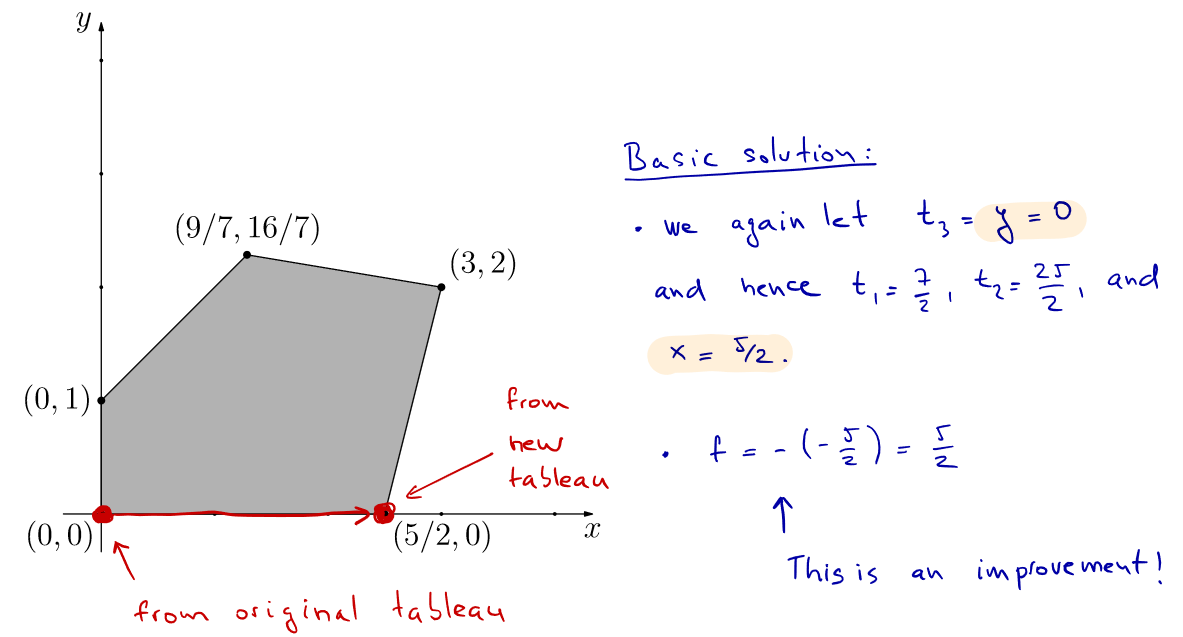 y
(9/7, 16/7)
(3, 2)
(0, 1)
(0, 0)
(5/2, 0)
x
from
new
tableau
from original tableau
Basic solution:
• we again let t₃ = y = 0
and hence t₁ = 7/2, t₂ = 25/2, and
x = 5/2.
• f = -(-5/2) = 5/2
↑
This is an improvement!